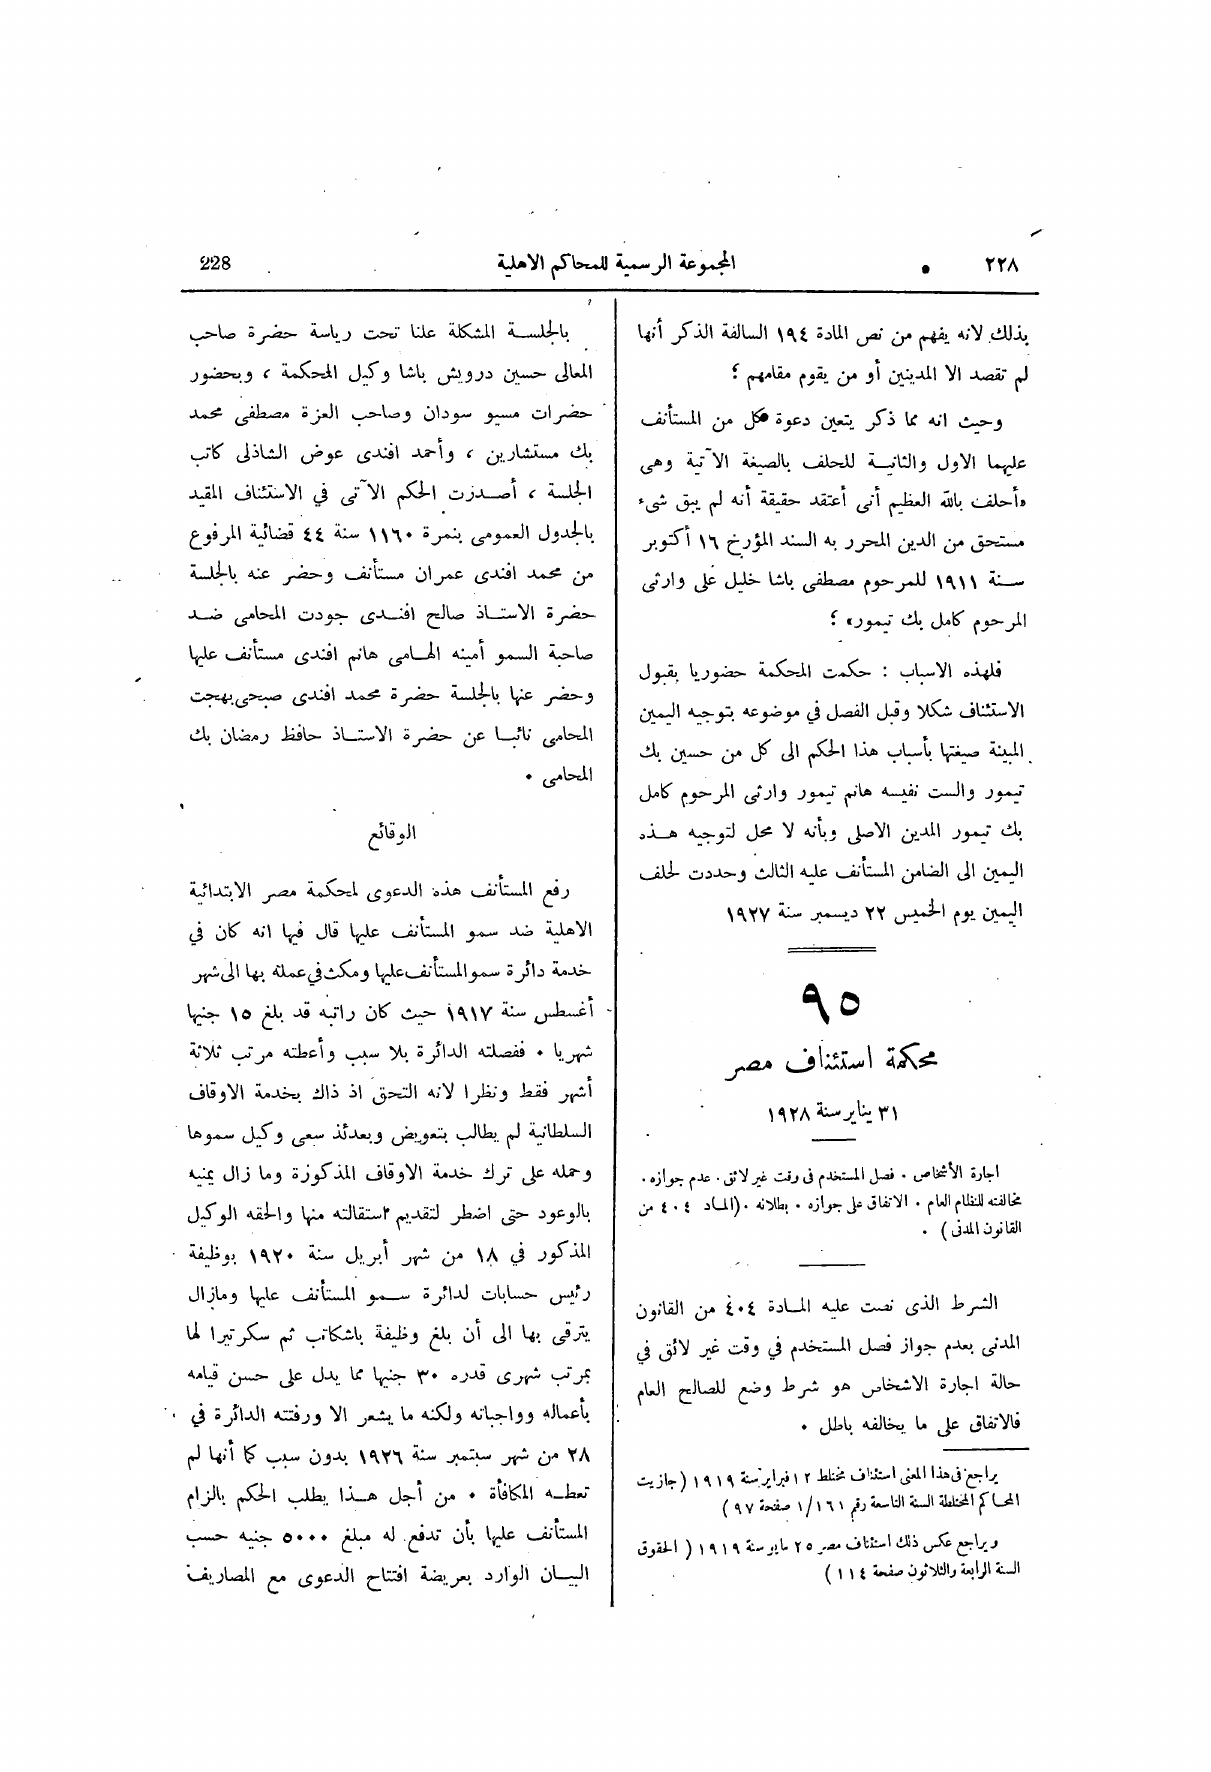 ٢٢٨
المجموعة الرسمية للمحاكم الاهلية
228
بذلك لانه يفهم من نص المادة ١٩٤ السالفة الذكر أنها
لم تقصد الا المدينين أو من يقوم مقامهم ؟
وحيث انه مما ذكر يتعين دعوة كل من المستأنف
عليهما الاول والثانية للحلف بالصيغة الآتية وهى
«أحلف بالله العظيم أنى أعتقد حقيقة أنه لم يبق شىء
مستحق من الدين المحرر به السند المؤرخ ١٦ أكتوبر
سنة ١٩١١ للمرحوم مصطفى باشا خليل على وارثى
المرحوم كامل بك تيمور» ؟
فلهذه الاسباب : حكمت المحكمة حضوريا بقبول
الاستئناف شكلا وقبل الفصل في موضوعه بتوجيه اليمين
المبينة صيغتها بأسباب هذا الحكم الى كل من حسين بك
تيمور والست نفيسه هانم تيمور وارثى المرحوم كامل
بك تيمور المدين الاصلى وبأنه لا محل لتوجيه هذه
اليمين الى الضامن المستأنف عليه الثالث وحددت لحلف
اليمين يوم الخميس ٢٢ ديسمبر سنة ١٩٢٧
٩٥
محكمة استئناف مصر
٣١ يناير سنة ١٩٢٨
اجارة الأشخاص . فصل المستخدم فى وقت غير لائق . عدم جوازه .
مخالفته للنظام العام . الاتفاق على جوازه . بطلانه . (الماد ٤٠٤ من
القانون المدنى ) .
الشرط الذى نصت عليه المادة ٤٠٤ من القانون
المدنى بعدم جواز فصل المستخدم في وقت غير لائق في
حالة اجارة الاشخاص هو شرط وضع للصالح العام
فالاتفاق على ما يخالفه باطل .
يراجع فى هذا المعنى استئناف مختلط ١٢ فبراير سنة ١٩١٩ ( جازيت
المحاكم المختلطة السنة التاسعة رقم ١/١٦١ صفحة ٩٧ )
ويراجع عكس ذلك استئناف مصر ٢٥ مايو سنة ١٩١٩ ( الحقوق
السنة الرابعة والثلاثون صفحة ١١٤ )
بالجلسة المشكلة علنا تحت رياسة حضرة صاحب
المعالى حسين درويش باشا وكيل المحكمة ، وبحضور
حضرات مسيو سودان وصاحب العزة مصطفى محمد
بك مستشارين ، وأحمد افندى عوض الشاذلى كاتب
الجلسة ، أصدرت الحكم الآتى في الاستئناف المقيد
بالجدول العمومى بنمرة ١١٦٠ سنة ٤٤ قضائية المرفوع
من محمد افندى عمران مستأنف وحضر عنه بالجلسة
حضرة الاستاذ صالح افندى جودت المحامى ضد
صاحبة السمو أمينه الهامى هانم افندى مستأنف عليها
وحضر عنها بالجلسة حضرة محمد افندى صبحى بهجت
المحامى نائبا عن حضرة الاستاذ حافظ رمضان بك
المحامى .
الوقائع
رفع المستأنف هذه الدعوى لمحكمة مصر الابتدائية
الاهلية ضد سمو المستأنف عليها قال فيها انه كان في
خدمة دائرة سمو المستأنف عليها ومكث في عمله بها الى شهر
أغسطس سنة ١٩١٧ حيث كان راتبه قد بلغ ١٥ جنيها
شهريا . ففصلته الدائرة بلا سبب وأعطته مرتب ثلاثة
أشهر فقط ونظرا لانه التحق اذ ذاك بخدمة الاوقاف
السلطانية لم يطالب بتعويض وبعدئذ سعى وكيل سموها
وحمله على ترك خدمة الاوقاف المذكوزة وما زال يمنيه
بالوعود حتى اضطر لتقديم استقالته منها والحقه الوكيل
المذكور في ١٨ من شهر أبريل سنة ١٩٢٠ بوظيفة
رئيس حسابات لدائرة سمو المستأنف عليها ومازال
يترقى بها الى أن بلغ وظيفة باشكاتب ثم سكرتيرا لها
بمرتب شهرى قدره ٣٠ جنيها مما يدل على حسن قيامه
بأعماله وواجباته ولكنه ما يشعر الا ورفتته الدائرة في
٢٨ من شهر سبتمبر سنة ١٩٢٦ بدون سبب كما أنها لم
تعطه المكافأة . من أجل هذا يطلب الحكم بالزام
المستأنف عليها بأن تدفع له مبلغ ٥٠٠٠ جنيه حسب
البيان الوارد بعريضة افتتاح الدعوى مع المصاريف